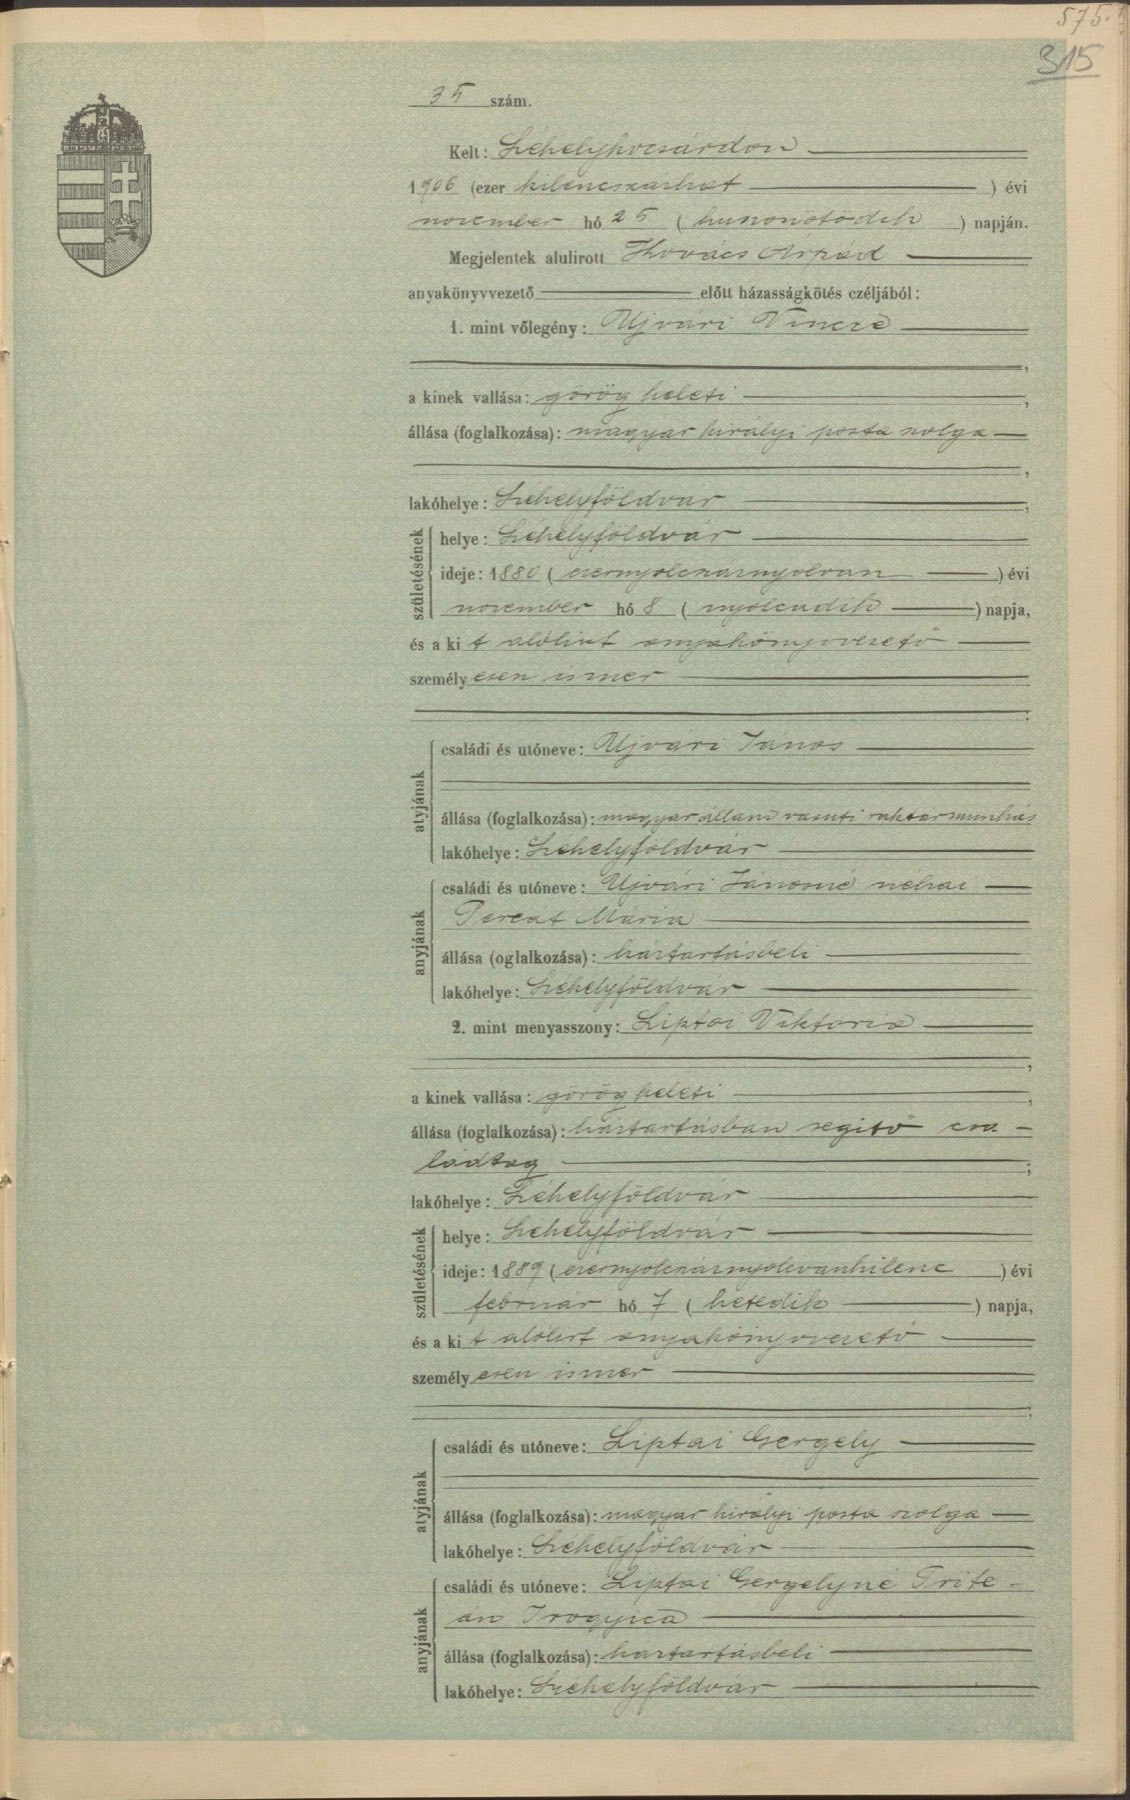 575.
315
35 szám.
Kelt: Székelykocsárdon
1906 (ezer kilenczszázhat) évi
november hó 25 (huszonötödik) napján.
Megjelentek alulirott Kovács Árpád
anyakönyvvezető előtt házasságkötés czéljából:
1. mint vőlegény: Ujvári Vincze
a kinek vallása: görög keleti
állása (foglalkozása): magyar királyi posta szolga
lakóhelye: Székelyföldvár
születésének
helye: Székelyföldvár
ideje: 1880 (ezernyolczszáznyolczvan) évi
november hó 8 (nyolczadik) napja,
és a kit alólirt anyakönyvvezető
személyesen ismer
atyjának
családi és utóneve: Ujvári János
állása (foglalkozása): magyar állami vasuti raktármunkás
lakóhelye: Székelyföldvár
anyjának
családi és utóneve: Ujvári Jánosné néhai
Mária
állása (oglalkozása): háztartásbeli
lakóhelye: Székelyföldvár
2. mint menyasszony: Liptai Viktoria
a kinek vallása: görög keleti
állása (foglalkozása): háztartásban segitő csa-
ládtag
lakóhelye: Székelyföldvár
születésének
helye: Székelyföldvár
ideje: 1889 (ezernyolczszáznyolczvankilencz) évi
február hó 7 (hetedik) napja,
és a kit alólirt anyakönyvvezető
személyesen ismer
atyjának
családi és utóneve: Liptai Gergely
állása (foglalkozása): magyar királyi posta szolga
lakóhelye: Székelyföldvár
anyjának
családi és utóneve: Liptai Gergelyné Trife-
án
állása (foglalkozása): háztartásbeli
lakóhelye: Székelyföldvár